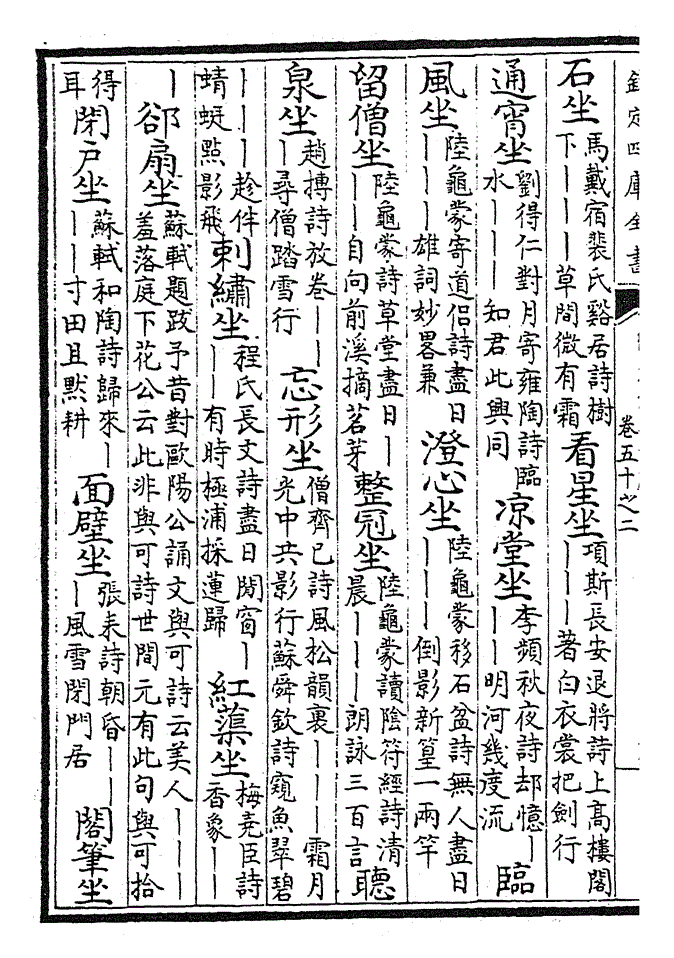 欽定四庫全書
卷五十之二
石坐馬戴宿裴氏谿居詩樹下｜｜｜草間微有霜看星坐項斯長安退將詩上高樓閣｜｜｜著白衣裳把劍行
通宵坐劉得仁對月寄雍陶詩臨水｜｜｜知君此興同凉堂坐李頻秋夜詩却憶｜｜｜明河幾度流臨
風坐陸龜蒙寄道侣詩盡日｜｜｜雄詞妙畧兼澄心坐陸龜蒙移石盆詩無人盡日｜｜｜倒影新篁一兩竿
留僧坐陸龜蒙詩草堂盡日｜｜｜自向前溪摘茗芽整冠坐陸龜蒙讀陰符經詩清晨｜｜｜朗詠三百言聽
泉坐趙摶詩放卷｜｜｜尋僧踏雪行忘形坐僧齊已詩風松韻裏｜｜｜霜月光中共影行蘇舜欽詩窺魚翠碧
｜｜｜趁伴蜻蜓點影飛刺繡坐程氏長文詩盡日閒窗｜｜｜有時極浦採蓮歸紅蕖坐梅堯臣詩香象｜｜
｜郤扇坐蘇軾題跋予昔對歐陽公誦文與可詩云美人｜｜｜羞落庭下花公云此非與可詩世間元有此句與可拾
得耳閉户坐蘇軾和陶詩歸來｜｜｜寸田且默耕面壁坐張耒詩朝昏｜｜｜風雪閉門居閣筆坐